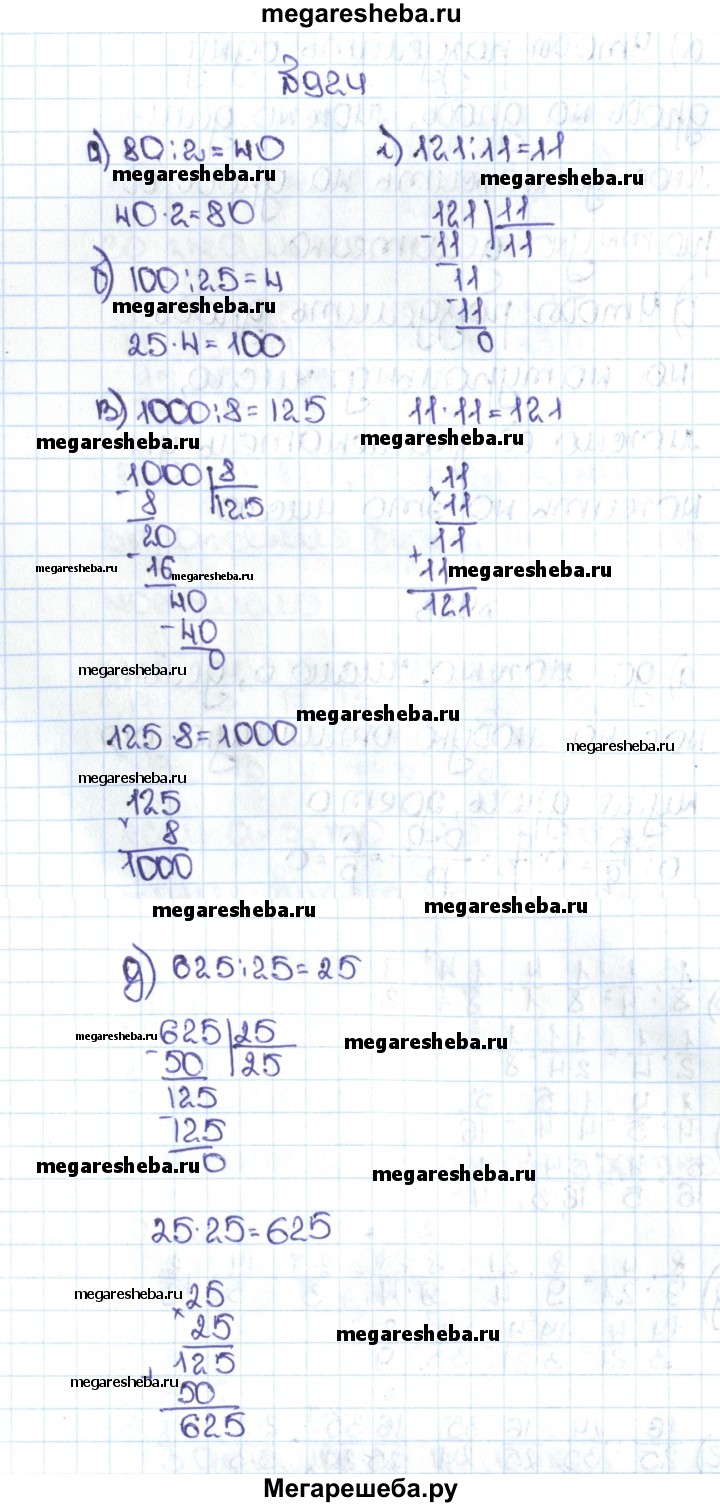 megaresheba.ru
№924
а) 80:2=40
megaresheba.ru
40·2=80
б) 100:25=4
megaresheba.ru
25·4=100
г) 121:11=11
megaresheba.ru
121 11
-11 11
11
-11
0
в) 1000:8=125
megaresheba.ru
1000 8
-8 125
20
-16
megaresheba.ru
megaresheba.ru
40
-40
0
megaresheba.ru
11·11=121
megaresheba.ru
11
×11
11
+11
megaresheba.ru
121
megaresheba.ru
125·8=1000
megaresheba.ru
megaresheba.ru
125
× 8
1000
megaresheba.ru
megaresheba.ru
д) 625:25=25
megaresheba.ru
625 25
-50 25
megaresheba.ru
125
-125
0
megaresheba.ru
megaresheba.ru
25·25=625
megaresheba.ru
25
×25
megaresheba.ru
125
+50
megaresheba.ru
625
Мегарешеба.ру